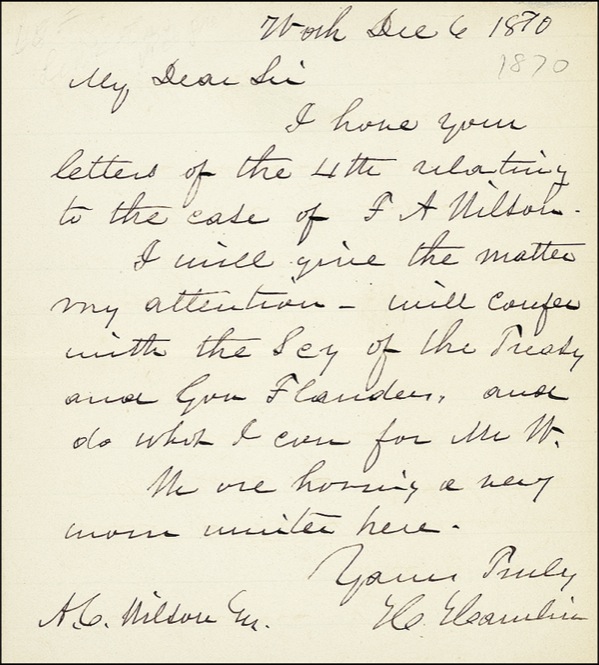 Wash Dec 6 1870
1870
My Dear Sir
I have your
letters of the 4th relating
to the case of F A Wilson.
I will give the matter
my attention – will confer
with the Scy of the Treasy
and Gov Flanders, and
do what I can for Mr W.
We are having a very
warm winter here.
Yours Truly
H. Hamlin
A. C. Wilson Esq.